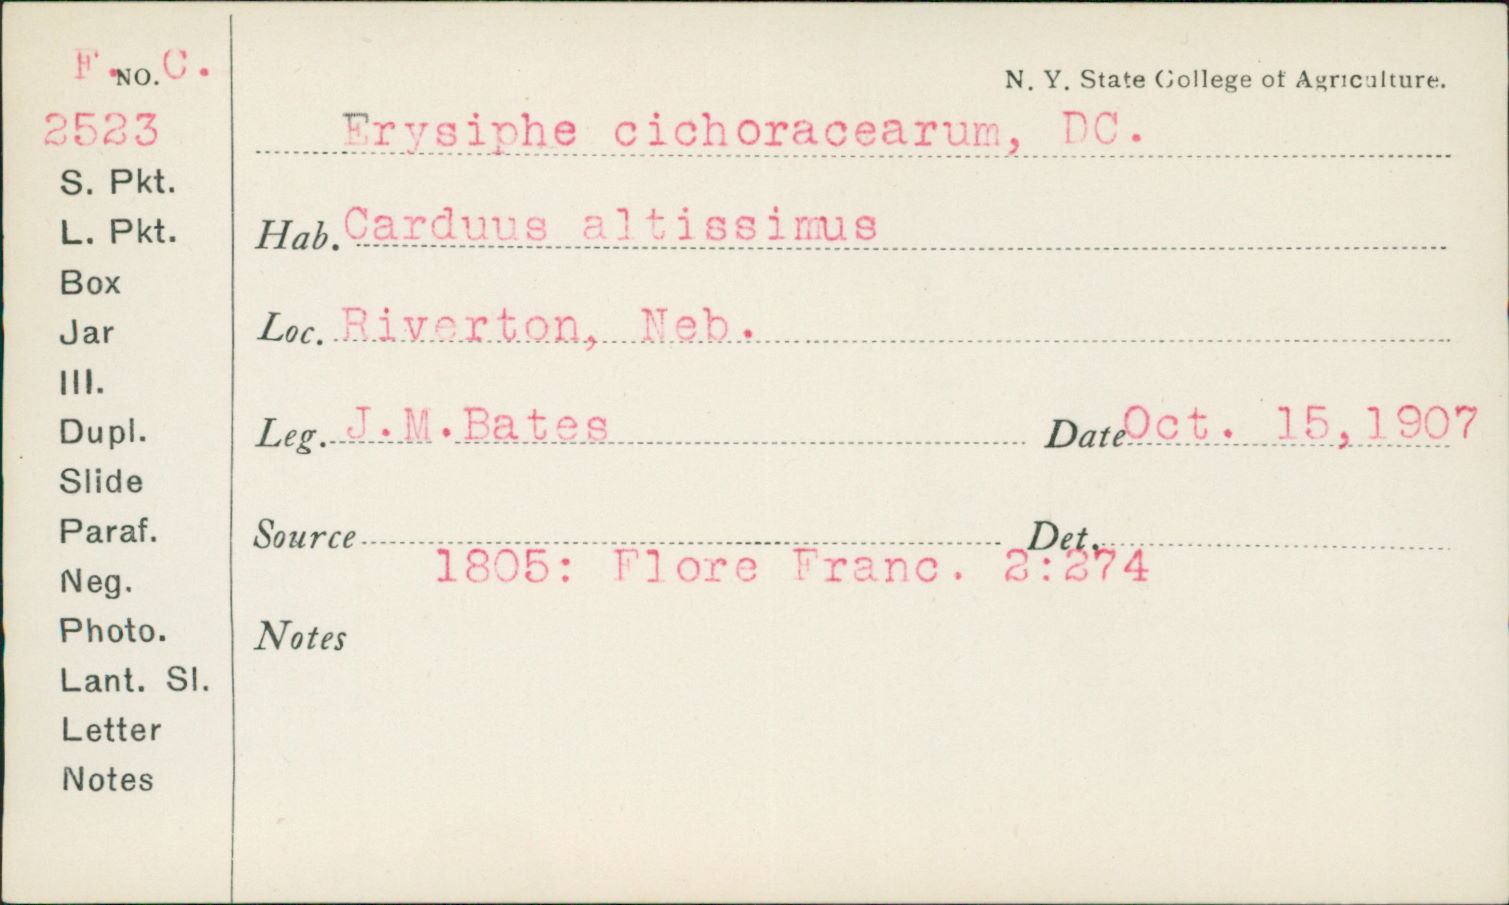 F. NO. C.
2523
S. Pkt.
L. Pkt.
Box
Jar
Ill.
Dupl.
Slide
Paraf.
Neg.
Photo.
Lant. Sl.
Letter
Notes
N. Y. State College of Agriculture.
Erysiphe cichoracearum, DC.
Hab. Carduus altissimus
Loc. Riverton, Neb.
Leg. J.M.Bates Date Oct. 15,1907
Source Det.
1805: Flore Franc. 2:274
Notes